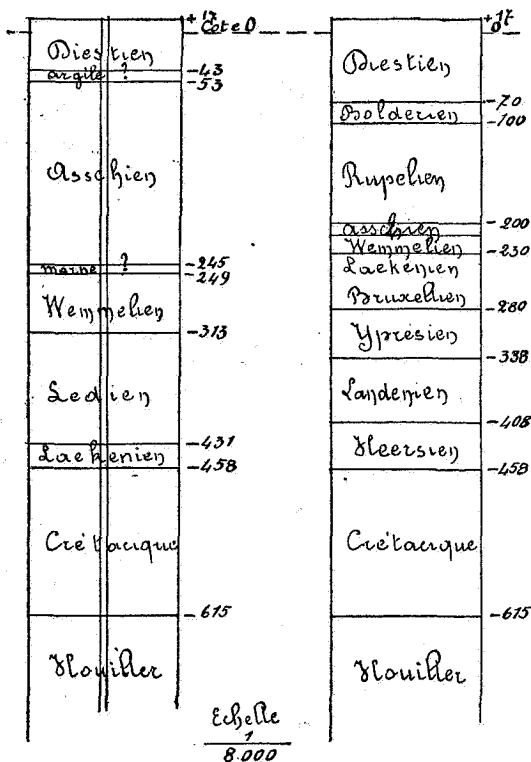 +17
Cote 0
Diestien
-43
argile ?
-53
Asschien
-245
marne ?
-249
Wemmelien
-313
Ledien
-431
Laekenien
-458
Crétacique
-615
Houiller
+17
0
Diestien
-70
Bolderien
-100
Rupelien
-200
asschien
Wemmelien
-230
Laekenien
Bruxellien
-280
Yprésien
-338
Landenien
-408
Heersien
-458
Crétacique
-615
Houiller
Echelle
1
8.000